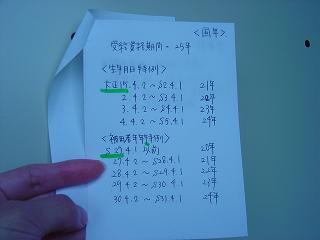 <国年>
受給資格期間 - 25年
<生年月日特例>
大正15.4.2～S2.4.1 21年
2.4.2～S3.4.1 22年
3.4.2～S4.4.1 23年
4.4.2～S5.4.1 24年
<被用者年金特例>
S27.4.1以前 20年
27.4.2～S28.4.1 21年
28.4.2～S29.4.1 22年
29.4.2～S30.4.1 23年
30.4.2～S31.4.1 24年